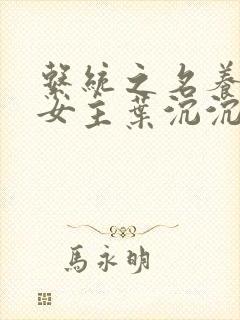 繫統之名養
女主葉沉沉
馬永明